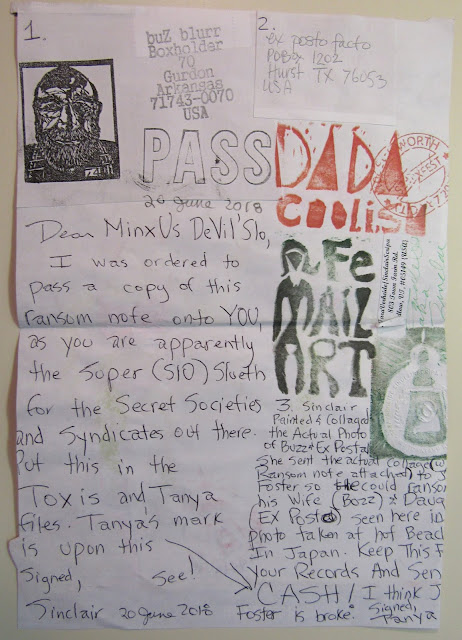 1.
buZ blurr
Boxholder
70
Gurdon
Arkansas
71743-0070
USA
2.
ex posto facto
POBox 1202
Hurst TX 76053
USA
PASS
DADA
COOLISH
LIFE
MAIL
ART
20 June 2018
Dear MinxUs DeVil'Slo,
I was ordered to
pass a copy of this
ransom note onto YOU,
as you are apparently
the Super (SIO) Slueth
for the Secret Societies
and Syndicates out there.
Put this in the
Toxis and Tanya
files. Tanya's mark
is upon this
Signed, See!
Sinclair 20 June 2018
3. Sinclair
Painted & Collaged
the Actual Photo
of Buzz & Ex Posta
She sent the actual collage
Ransom note attached to
Foster so the could ransom
his Wife (Bozz) & Daug
(EX Posto) seen here in
photo taken at hot Beac
In Japan. Keep This F
your Records And Sen
CASH! I think J
Foster is broke. Signed,
Tanya